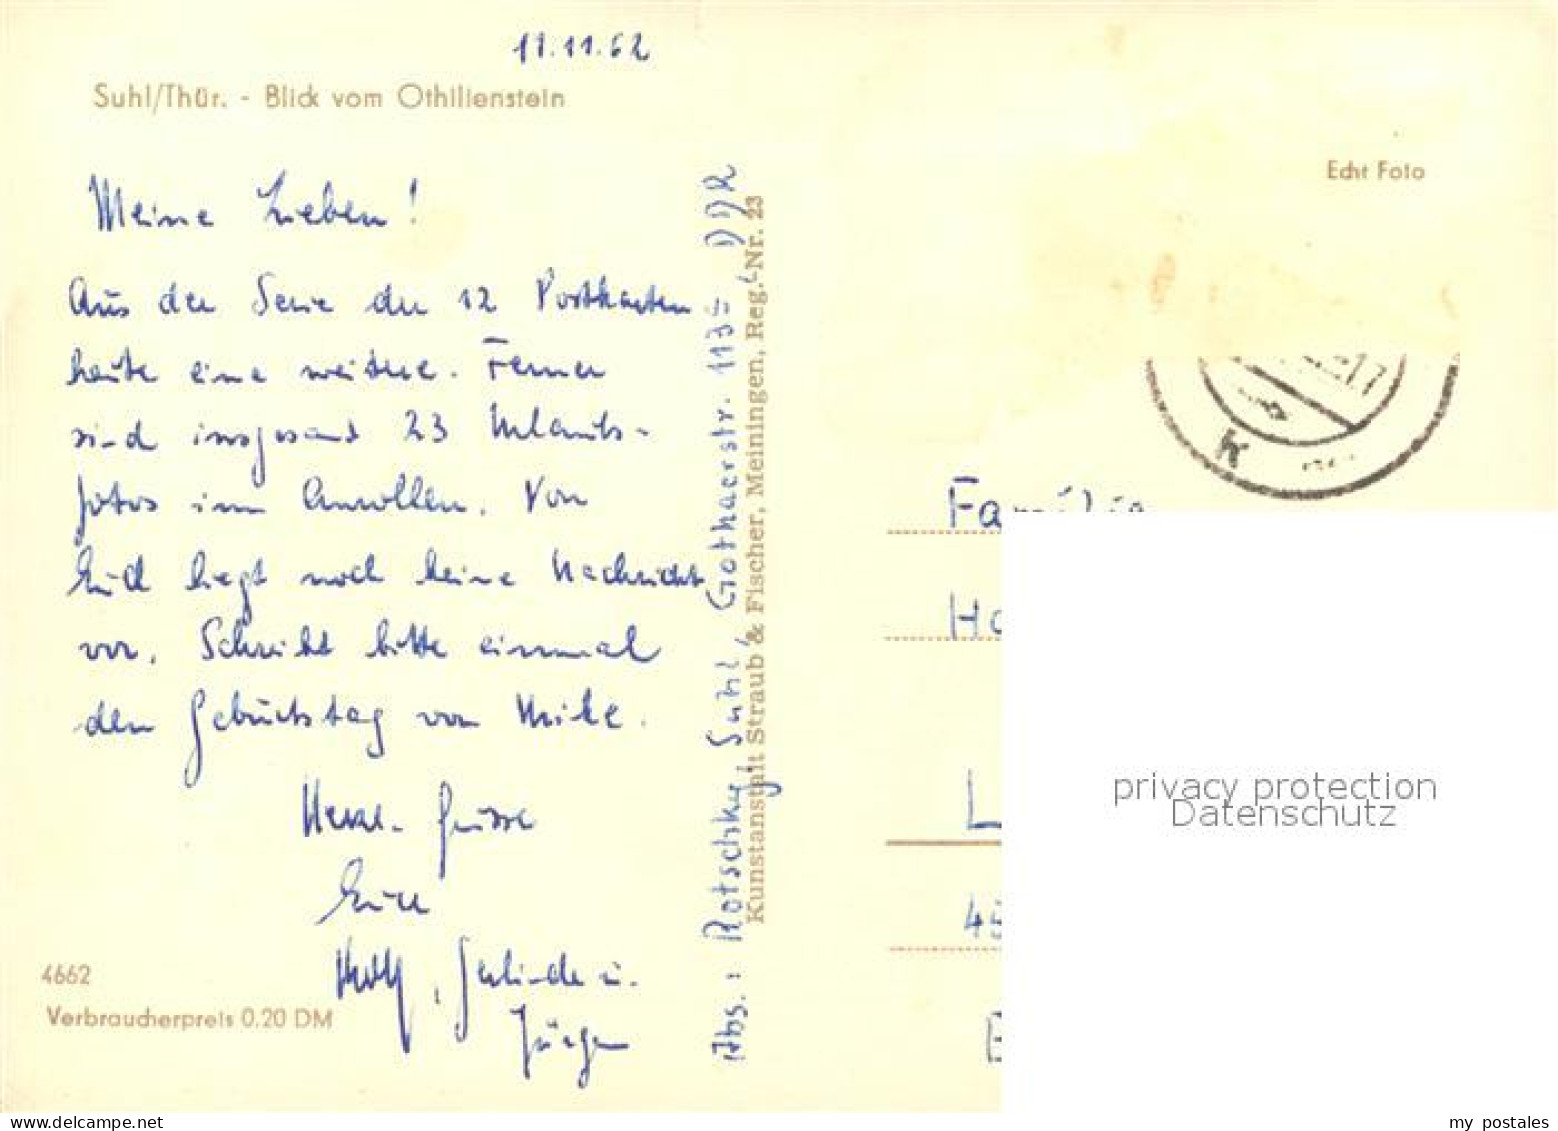 11.11.62
Suhl/Thür. - Blick vom Othilienstein
Meine Lieben!
Aus der Serie der 12 Postkarten
heute eine weitere. Ferner
sind insgesamt 23 Urlaubs-
fotos im Anrollen. Von
Euch liegt noch keine Nachricht
vor. Schreibt bitte einmal
den Geburtstag von Mike.
Herzl. Grüsse
Eure
Rolf, Gerlinde u.
Jürgen
4662
Verbraucherpreis 0,20 DM
Abs.: Rotschky, Suhl, Gothaerstr. 113 DDR
Kunstanstalt Straub & Fischer, Meiningen, Reg.-Nr. 23
Echt Foto
17
K
Familie
Ha
L
45
privacy protection
Datenschutz
www.delcampe.net
my_postales